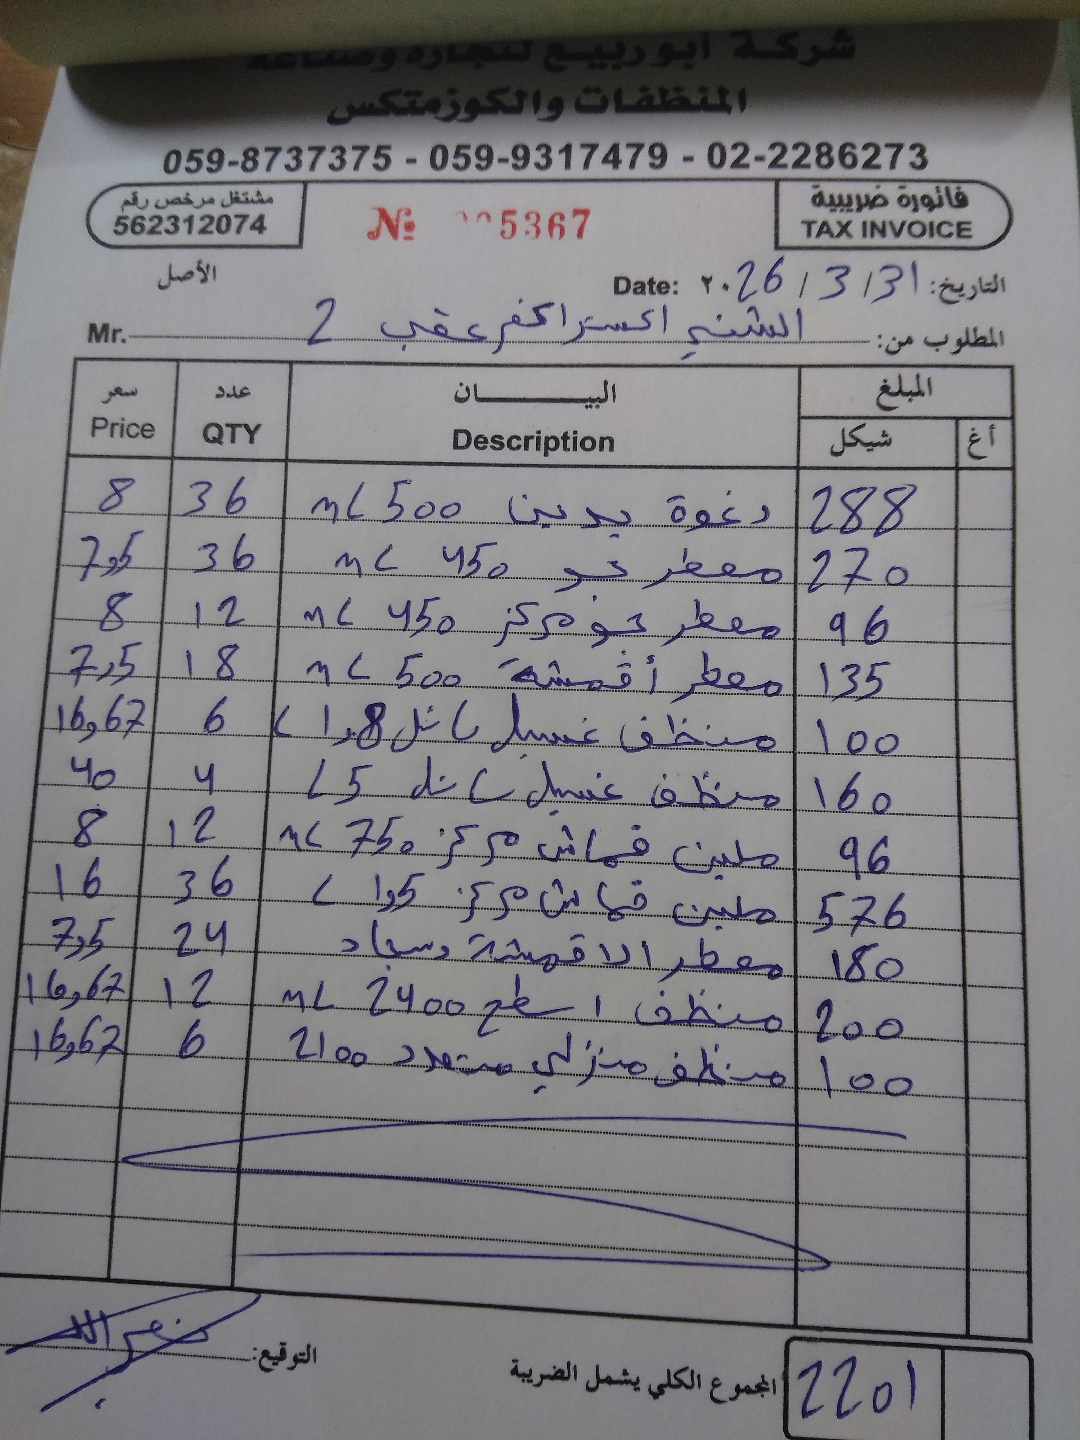 شركة ابو ربيع لتجارة وصناعة
المنظفات والكوزمتكس
059-8737375 - 059-9317479 - 02-2286273
مشتغل مرخص رقم
562312074
№ 5367
فاتورة ضريبية
TAX INVOICE
الأصل
التاريخ: 31/3/2026 Date:
المطلوب من: الشني اكسترا كفر عقب 2 Mr.
سعر عدد البيــــان المبلغ
Price QTY Description شيكل أغ
8 36 رغوة يدين 500 mL 288
7,5 36 معطر جو 450 mL 270
8 12 معطر جو مركز 450 mL 96
7,5 18 معطر أقمشة 500 mL 135
16,67 6 منظف غسيل سائل 1,8 L 100
40 4 منظف غسيل سائل 5 L 160
8 12 ملين قماش مركز 750 mL 96
16 36 ملين قماش مركز 1,5 L 576
7,5 24 معطر الاقمشة وسجاد 180
16,67 12 منظف اسطح 2400 mL 200
16,67 6 منظف منزلي متعدد 2100 100
التوقيع:
المجموع الكلي يشمل الضريبة 2201